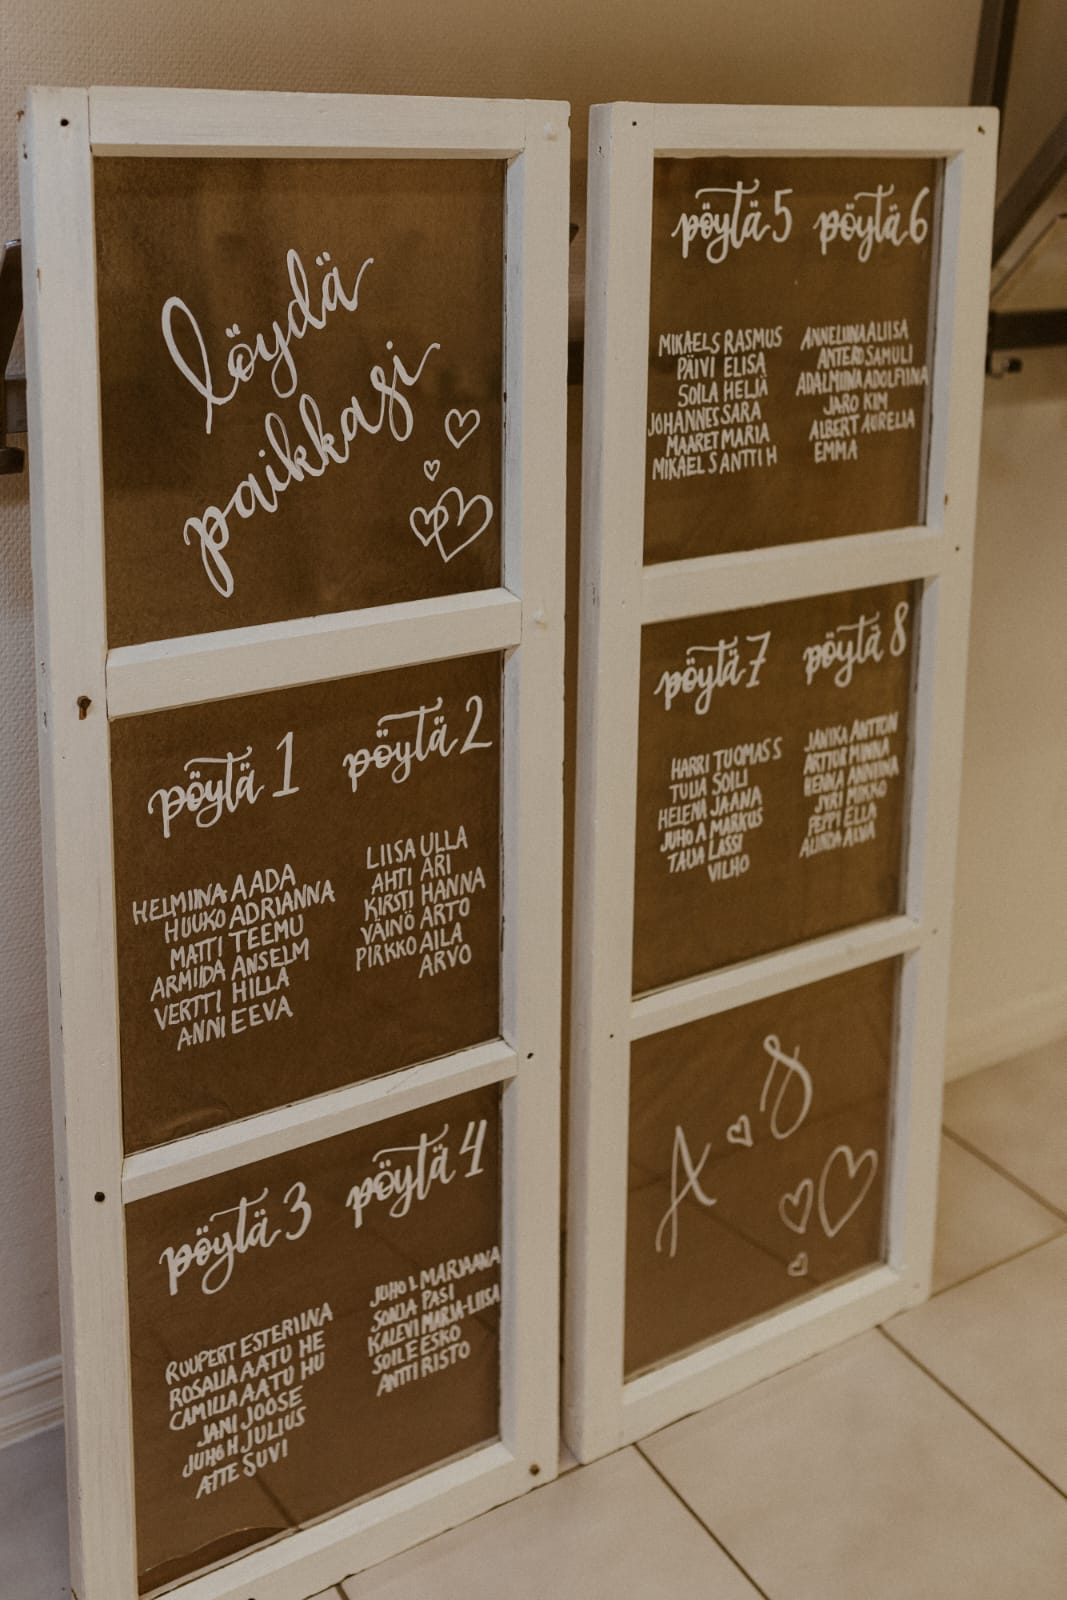 löydä
paikkasi
pöytä 1
HELMIINA AADA
HUUKO ADRIANNA
MATTI TEEMU
ARMIDA ANSELM
VERTTI HILLA
ANNI EEVA
pöytä 2
LIISA ULLA
AHTI ARI
KIRSTI HANNA
VÄINÖ ARTO
PIRKKO AILA
ARVO
pöytä 3
RUUPERT ESTERIINA
ROSALIA AATU HE
CAMILLA AATU HU
JANI JOOSE
JUHO H JULIUS
ATTE SUVI
pöytä 4
JUHO L MARJAANA
SONJA PASI
KALEVI MARJA-LIISA
SOILE ESKO
ANTTI RISTO
pöytä 5
MIKAEL S RASMUS
PÄIVI ELISA
SOILA HELJÄ
JOHANNES SARA
MAARET MARIA
MIKAEL S ANTTI H
pöytä 6
ANNELIINA ALIISA
ANTERO SAMULI
ADALMIINA ADOLFIINA
JARO KIM
ALBERT AURELIA
EMMA
pöytä 7
HARRI TUOMAS S
TUIJA SOILI
HELENA JAANA
JUHO A MARKUS
TAIJA LASSI
VILHO
pöytä 8
JANIKA ANTTON
ARTTUR MINNA
HENNA ANNIINA
JYRI MIKKO
PEPPI ELLA
ALINDA ALVA
A S